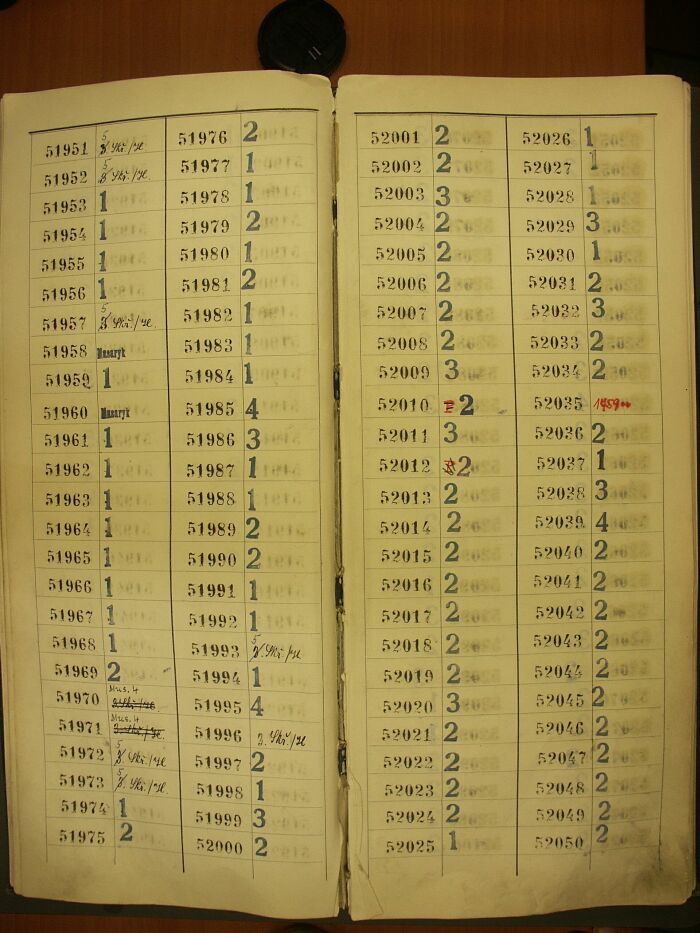 51951 5 Skř./ze
51952 5 Skř./ze.
51953 1
51954 1
51955 1
51956 1
51957 5 Skř./ze.
51958 Masaryk
51959 1
51960 Masaryk
51961 1
51962 1
51963 1
51964 1
51965 1
51966 1
51967 1
51968 1
51969 2
51970 Mus. 4
51971 Mus. 4
51972 5 Skř./ze.
51973 5 Skř./ze.
51974 1
51975 2
51976 2
51977 1
51978 1
51979 2
51980 1
51981 2
51982 1
51983 1
51984 1
51985 4
51986 3
51987 1
51988 1
51989 2
51990 2
51991 1
51992 1
51993 5 Skř./ze
51994 1
51995 4
51996 2. Skř./ze.
51997 2
51998 1
51999 3
52000 2
52001 2
52002 2
52003 3
52004 2
52005 2
52006 2
52007 2
52008 2
52009 3
52010 2
52011 3
52012 2
52013 2
52014 2
52015 2
52016 2
52017 2
52018 2
52019 2
52020 3
52021 2
52022 2
52023 2
52024 2
52025 1
52026 1
52027 1
52028 1
52029 3
52030 1
52031 2
52032 3
52033 2
52034 2
52035
52036 2
52037 1
52038 3
52039 4
52040 2
52041 2
52042 2
52043 2
52044 2
52045 2
52046 2
52047 2
52048 2
52049 2
52050 2